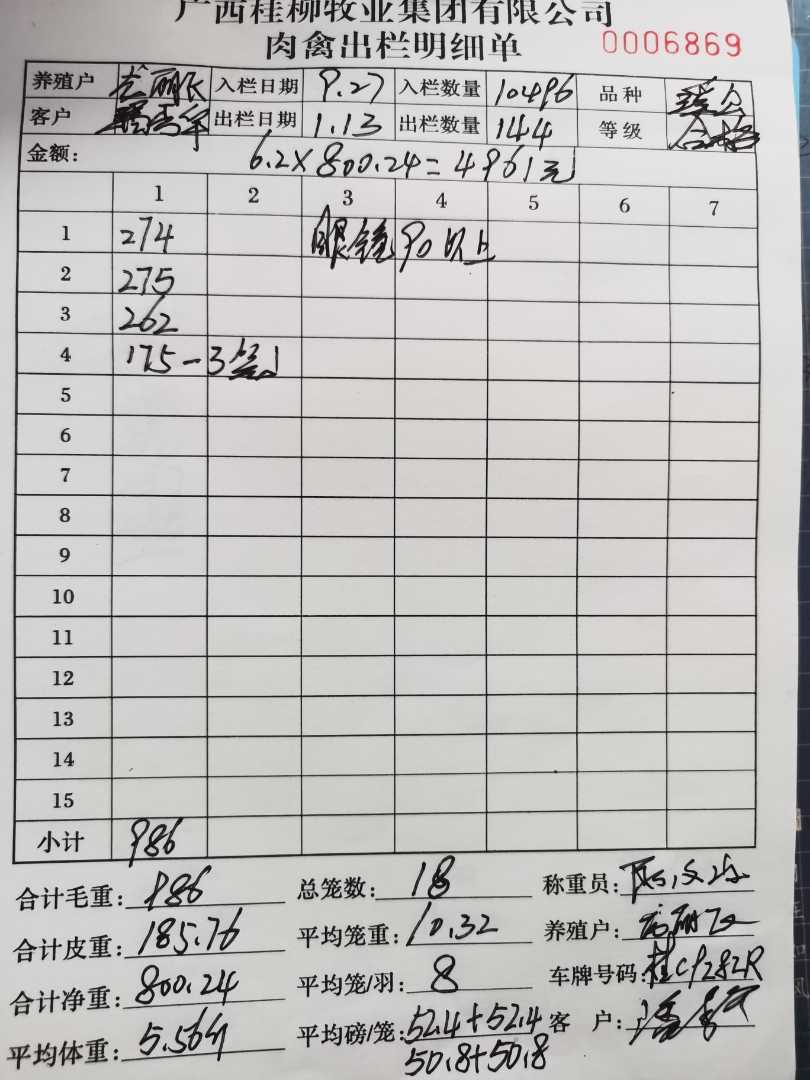 广西桂柳牧业集团有限公司
肉禽出栏明细单 0006869
养殖户 入栏日期 9.27 入栏数量 10496 品种
客户 出栏日期 1.13 出栏数量 144 等级 合格
金额: 6.2×800.24=4961元
1 2 3 4 5 6 7
1 274 眼镜90以上
2 275
3 262
4 175-3笼
5
6
7
8
9
10
11
12
13
14
15
小计 986
合计毛重: 986 总笼数: 18 称重员:
合计皮重: 185.76 平均笼重: 10.32 养殖户:
合计净重: 800.24 平均笼/羽: 8 车牌号码: 桂CP282R
平均体重: 5.56斤 平均磅/笼: 52.4+52.4 客 户:
50.8+50.8